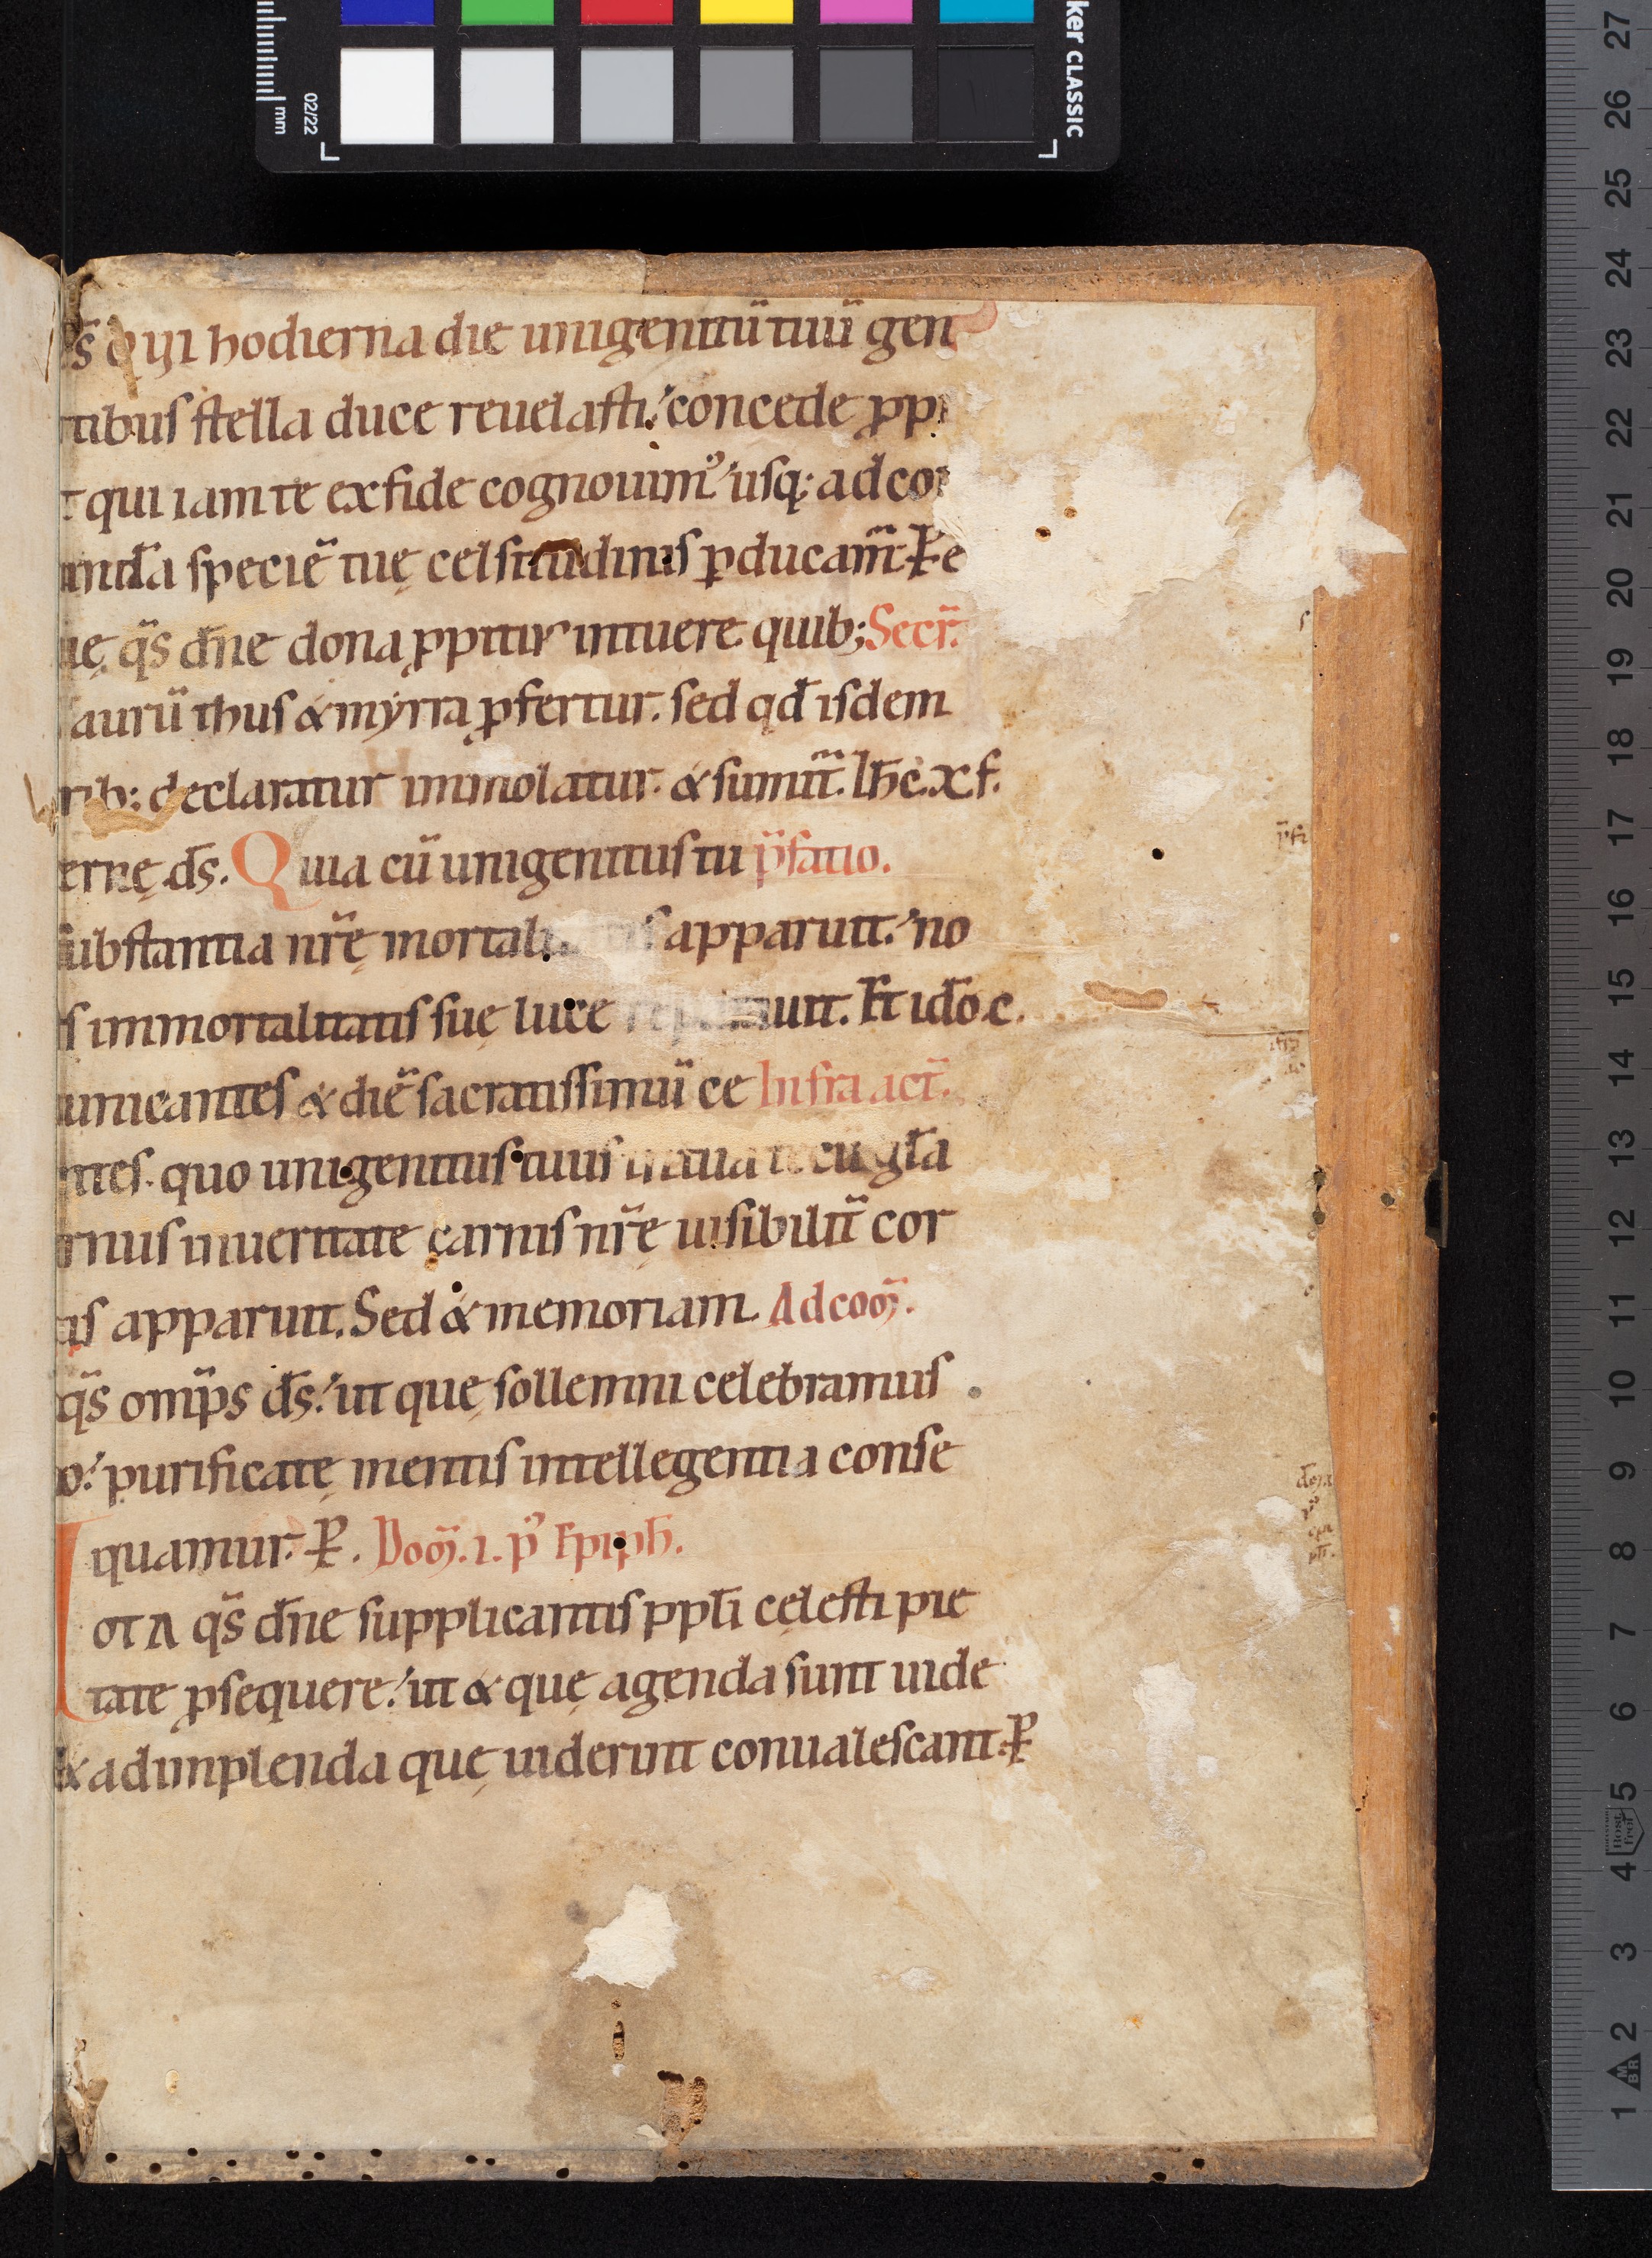 ker CLASSIC
02/22
mm
s̄ QUI hodierna die unigenitū tuū gen
tibus stella duce reuelasti. concede ꝓp
qui iam te ex fide cognouimꝰ usq; ad con
anda speciē tuę celsitudinis ꝑducam̄. P e
ę q̄s dn̄e dona ꝓpitiꝰ intuere. quib; Secr̄.
aurū thus & myrra ꝓfertur. sed qd̄ isdem
rib; declaratur immolatur. & sumit̄. Ih̄c. x f.
ernę ds̄. Quia cū unigenitus tu p̄fatio.
substantia nr̄ę mortalitatis apparuit. no
s immortalitatis suę luce reparauit. Et idō c.
unicantes & diē sacratissimū ce Infra act̄.
ntes. quo unigenitus tuus in tua tecū gl̄a
rnus in ueritate carnis nr̄ę uisibilit̄ cor
is apparuit. Sed & memoriam. Ad com̄.
q̄s omp̄s ds̄. ut quę sollemni celebramus
o. purificatę mentis intellegentia conse
quamur. P. Dom̄. I. pꝰ Epiph̄.
OTA q̄s dn̄e supplicantis ppl̄i cęlesti pie
tate ꝓsequere. ut & quę agenda sunt uide
& adimplenda quę uiderint conualescant. P
27
26
25
24
23
22
21
20
19
18
17
16
15
14
13
12
11
10
9
8
7
6
5
4
3
2
1